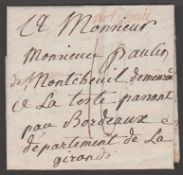 A Monsieur
Monsieur Paulin
de Montcheuil demeurant
A La teste passant
par Bordeaux
departement de La
gironde